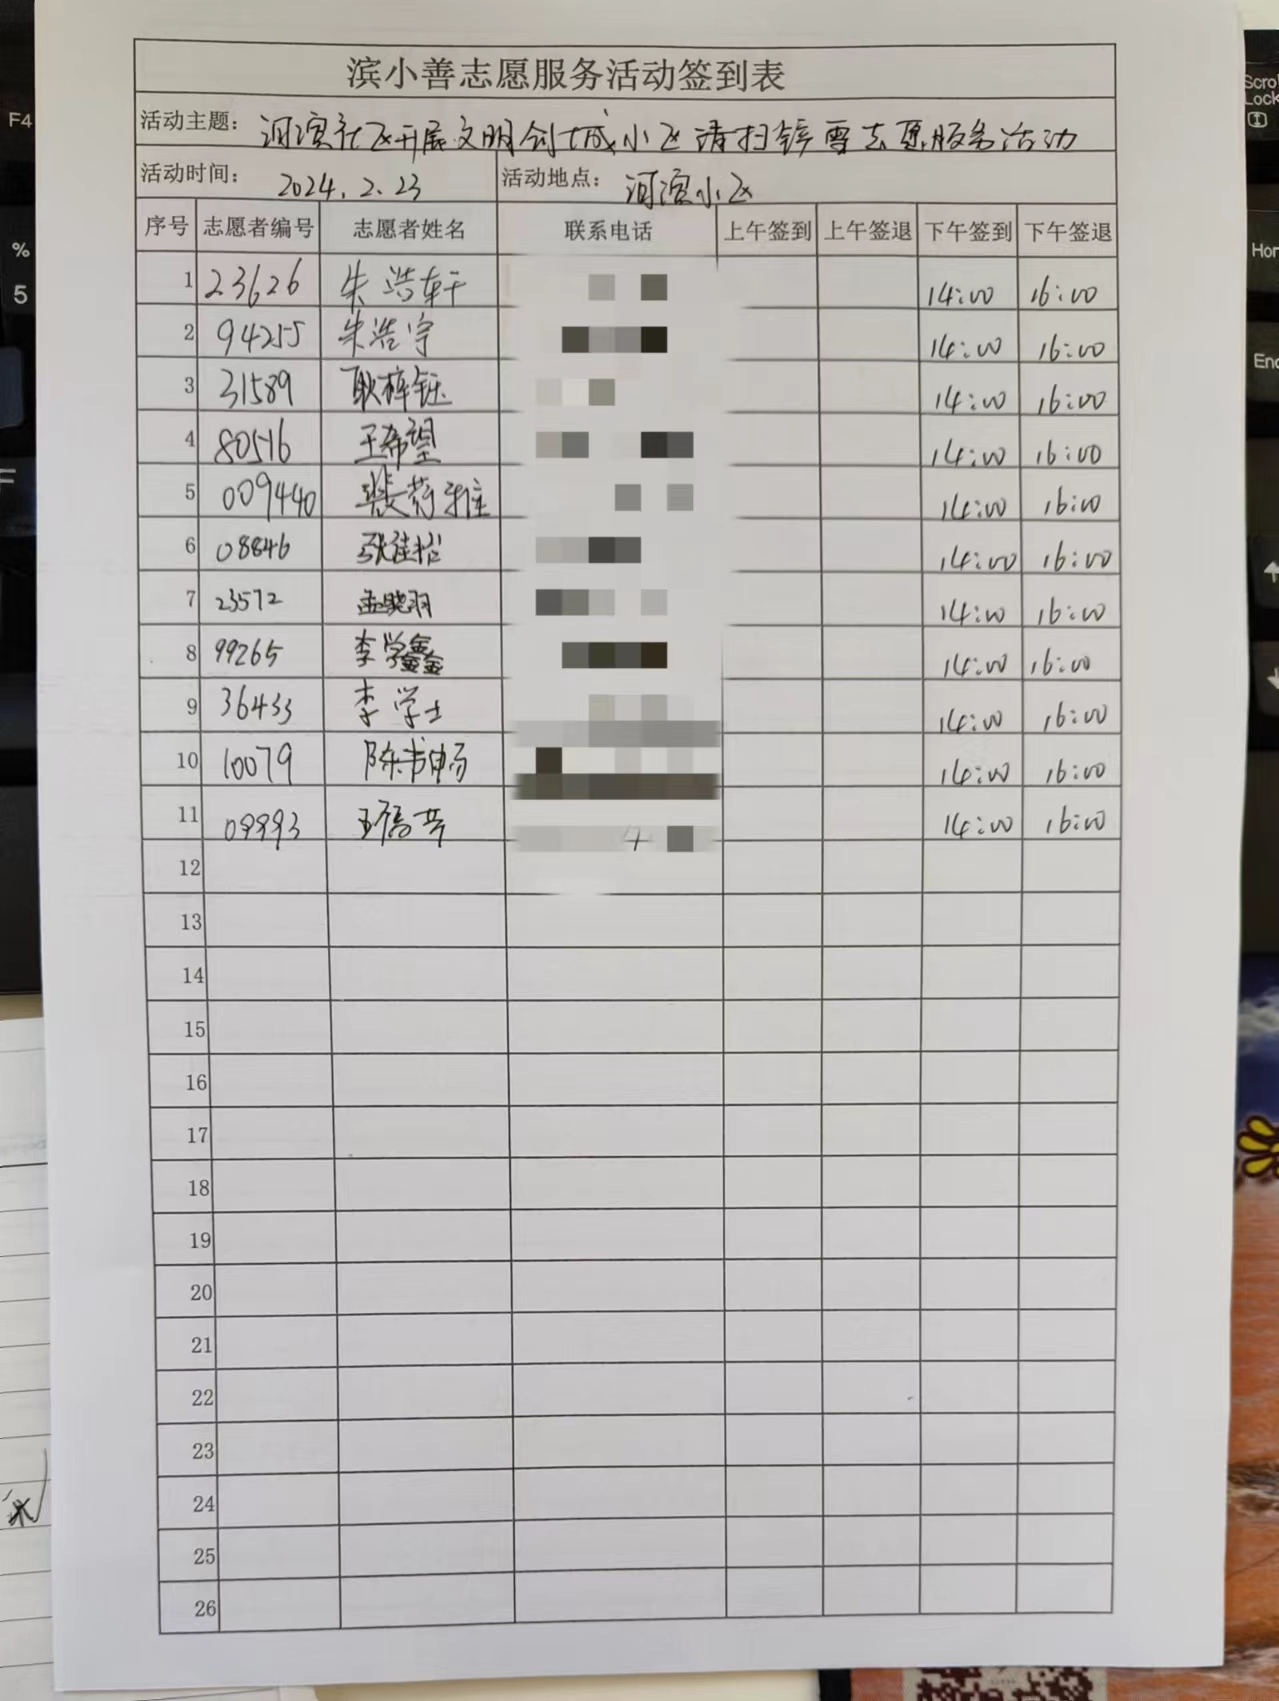 滨小善志愿服务活动签到表
活动主题: 河滨社区开展文明创城小区清扫铲雪志愿服务活动
活动时间: 2024.2.23 活动地点: 河滨小区
序号 志愿者编号 志愿者姓名 联系电话 上午签到 上午签退 下午签到 下午签退
1 23626 朱浩轩 14:00 16:00
2 94255 朱浩宇 14:00 16:00
3 31589 耿梓钰 14:00 16:00
4 80516 王希望 14:00 16:00
5 009440 14:00 16:00
6 08846 14:00 16:00
7 23572 孟晓羽 14:00 16:00
8 99265 李学鑫 14:00 16:00
9 36433 李学士 14:00 16:00
10 10079 陈书畅 14:00 16:00
11 09993 4 14:00 16:00
12
13
14
15
16
17
18
19
20
21
22
23
24
25
26
F4
%
5
Scro
Lock
Hom
End